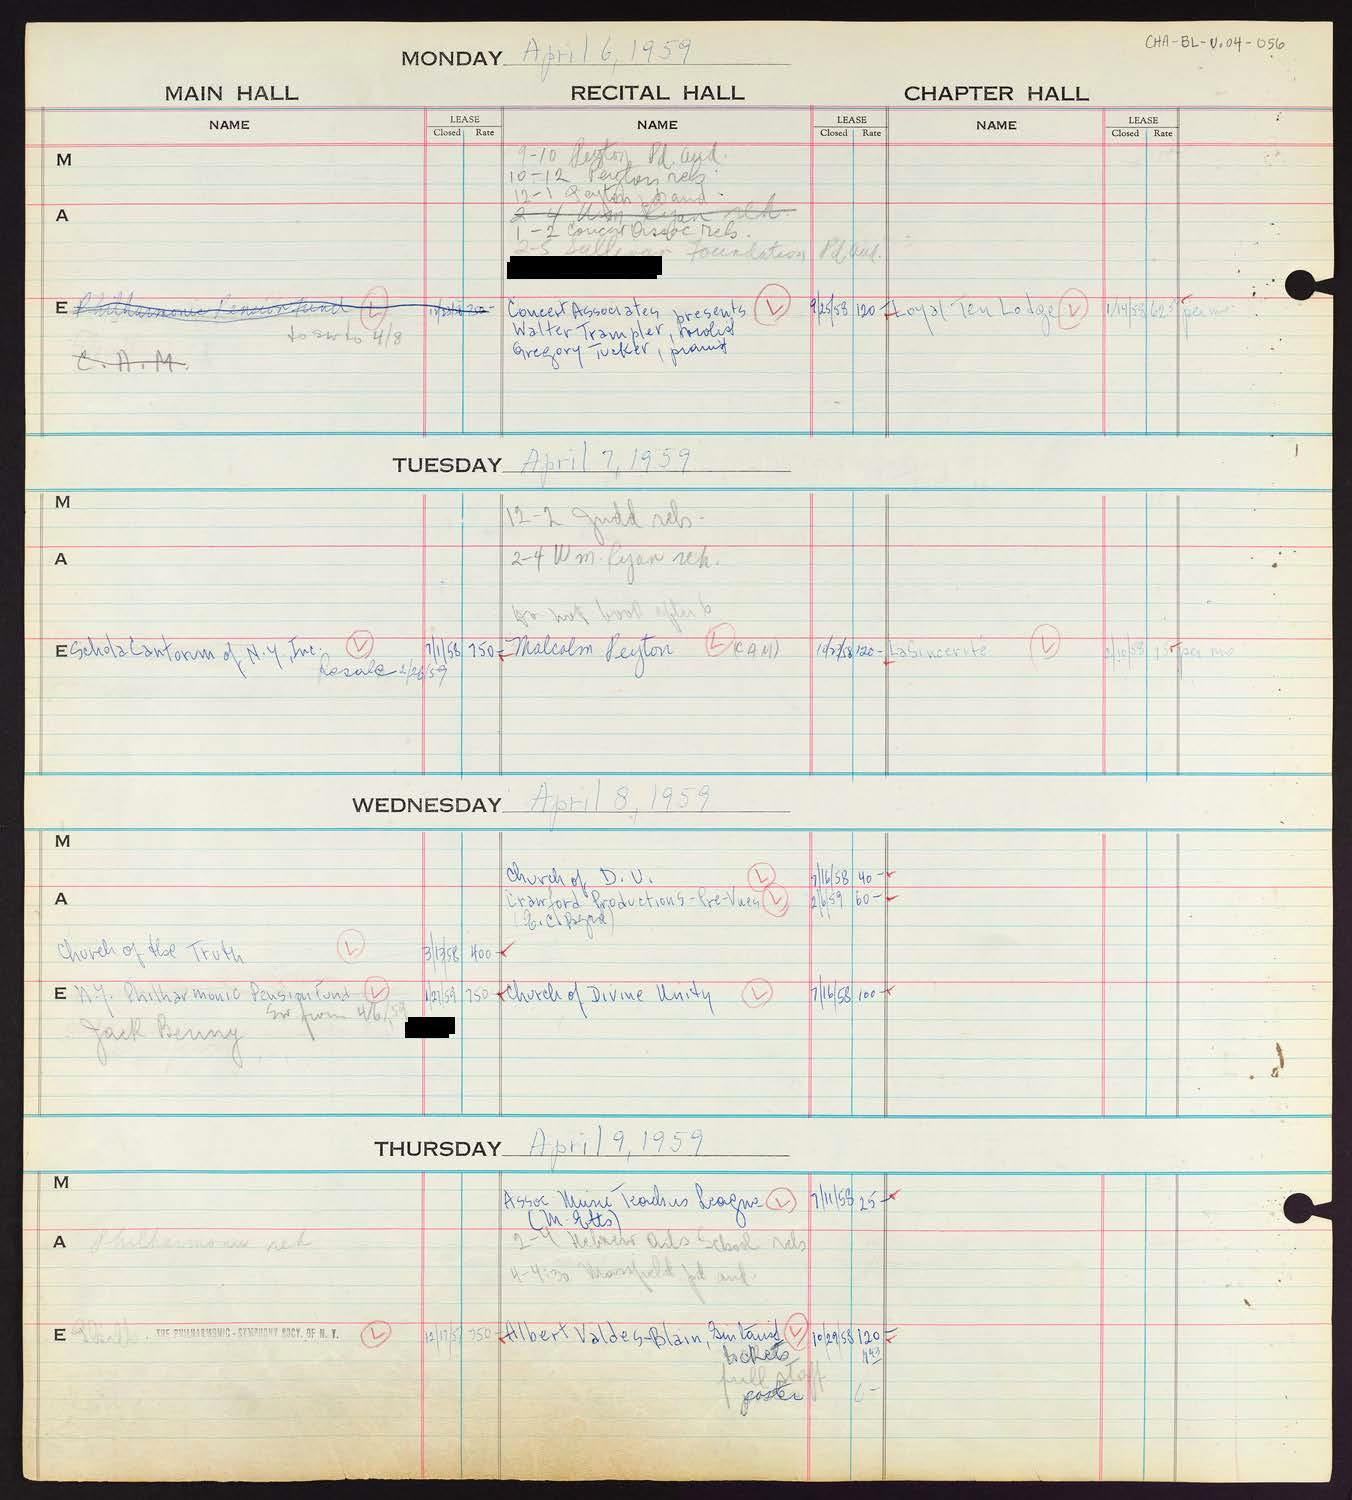 CHA-BL-V.04-056
MONDAY April 6, 1959
MAIN HALL RECITAL HALL CHAPTER HALL
NAME LEASE Closed Rate NAME LEASE Closed Rate NAME LEASE Closed Rate
M
9-10 Peyton Pd. aud.
10-12 Peyton reh.
12-1 Peyton
A
2-4 Wm Ryan reh.
1-2 Concert Assoc. reh.
2-5 Sullivan Foundation Pd. aud.
E Philharmonic Pension Fund L
Concert Associates presents L 9/25/58 120-
Loyal Ten Lodge L 1/14/58 per mo
to 4/8
Walter Trampler, violist
Gregory Tucker, pianist
C.A.M.
TUESDAY April 7, 1959
M
12-2 Judd reh-
A
2-4 Wm. Ryan reh.
do not book after 6
E Schola Cantorum of N.Y., Inc. L 7/1/58 750-
Malcolm Peyton L (CAM) 120-
LaSincerité L per mo
Resale 2/26/59
WEDNESDAY April 8, 1959
M
Church of D.U. L 7/16/58 40-
A
Crawford Productions-Pre-Vues L 2/6/59 60-
Church of the Truth L 3/13/58 400-
E N.Y. Philharmonic Pension Fund L 1/27/59 750
Church of Divine Unity L 7/16/58 100-
from 4/6/59
Jack Benny
THURSDAY April 9, 1959
M
Assoc Music Teachers League L 7/11/58 25-
A Philharmonic reh
2-4 Hebrew Arts School reh
4-4:30 Mansfield pd aud.
E THE PHILHARMONIC-SYMPHONY SOCY. OF N. Y. L 12/17/57 750
Albert Valdes-Blain, Guitarist L 10/29/58 120-
tickets
full staff
poster